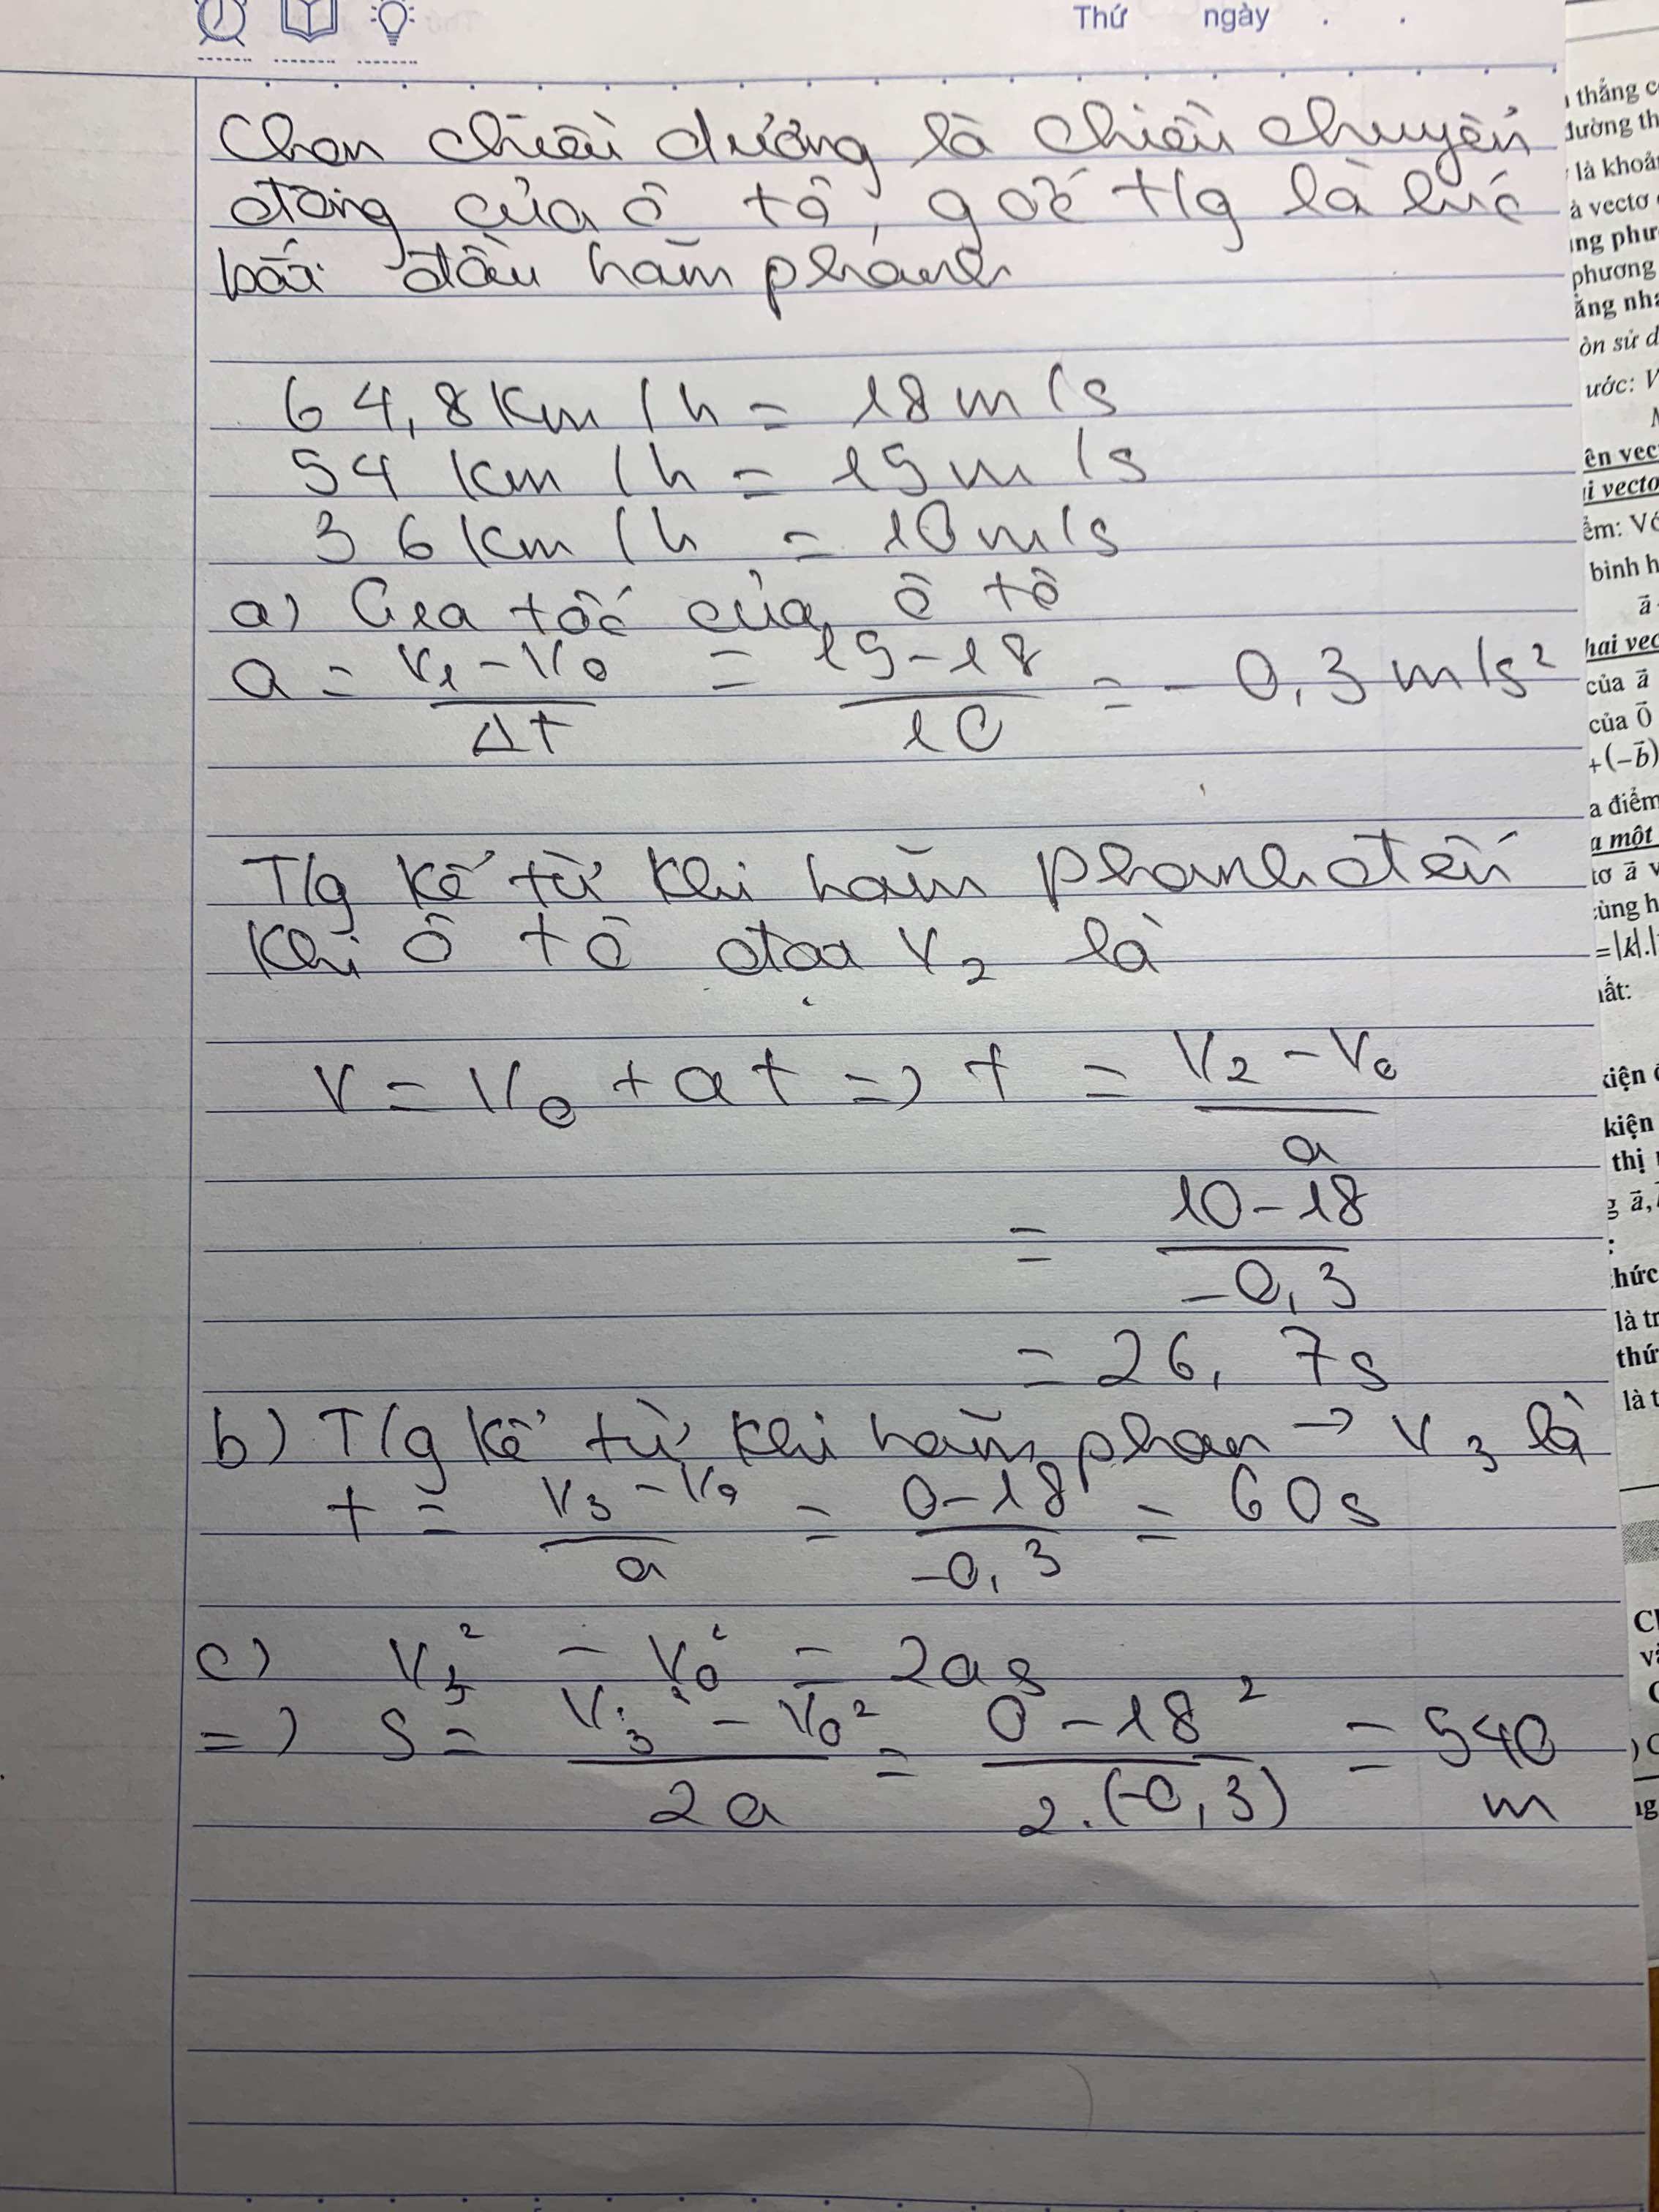 Thứ ngày . .
Chọn chiều dương là chiều chuyển
động của ô tô, gốc t/g là lúc
bắt đầu hãm phanh
64,8 km/h = 18 m/s
54 km/h = 15 m/s
36 km/h = 10 m/s
a) Gia tốc của ô tô
a = (v₁ - v₀)/Δt = (15 - 18)/10 = - 0,3 m/s²
T/g kể từ khi hãm phanh đến
khi ô tô đạt v₂ là
v = v₀ + at => t = (v₂ - v₀)/a
= (10 - 18)/(-0,3)
= 26,7s
b) T/g kể từ khi hãm phan → v₃ là
t = (v₃ - v₀)/a = (0 - 18)/(-0,3) = 60s
c) v₃² - v₀² = 2as
=> s = (v₃² - v₀²)/2a = (0 - 18²)/(2.(-0,3)) = 540
m
thẳng c
đường th
là khoả
vectơ
phươ
phương
ằng nha
òn sử d
ước: V
ên vec
i vectơ
ểm: Vớ
bình h
a⃗
hai vec
của a⃗
của 0⃗
+(-b⃗)
a điểm
a một
tơ a⃗ v
cùng h
=|k|.|
hất:
kiện
kiện
thị
:
hức
là tr
thứ
là t